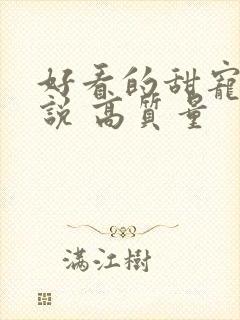 好看的甜寵
説 高質量
满江樹